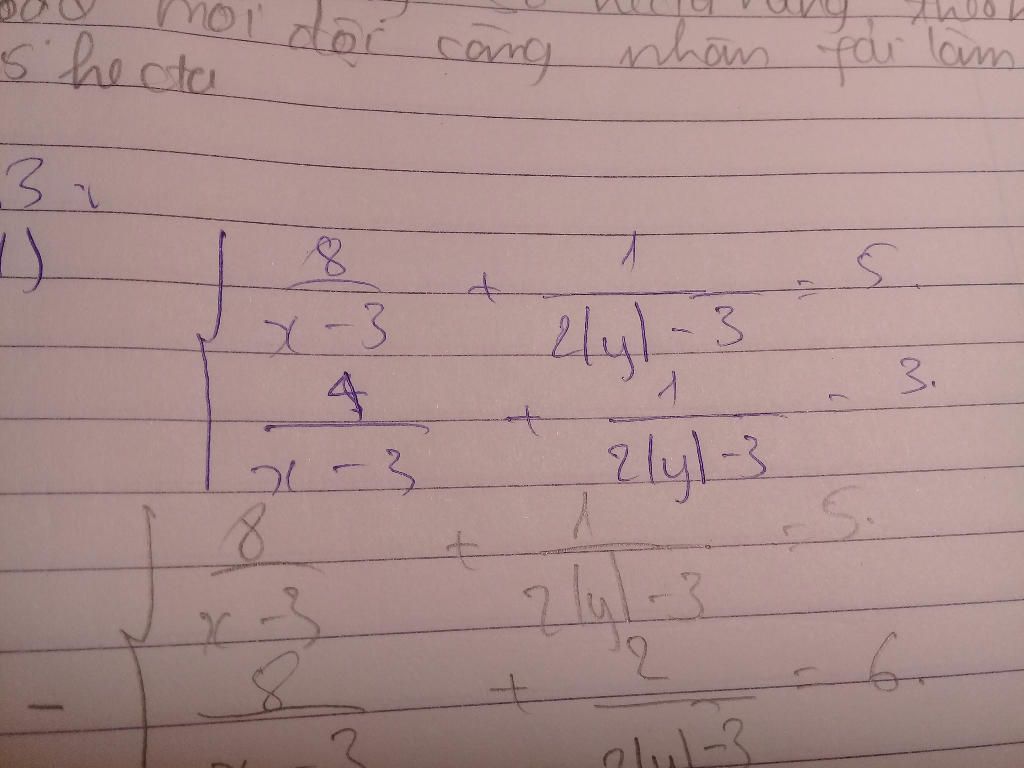 mỗi đội công nhân fải làm
5 hecta
3.
1) { 8/(x-3) + 1/(2|y|-3) = 5
4/(x-3) + 1/(2|y|-3) = 3.
{ 8/(x-3) + 1/(2|y|-3) = 5.
- 8/(x-3) + 2/(2|y|-3) = 6.